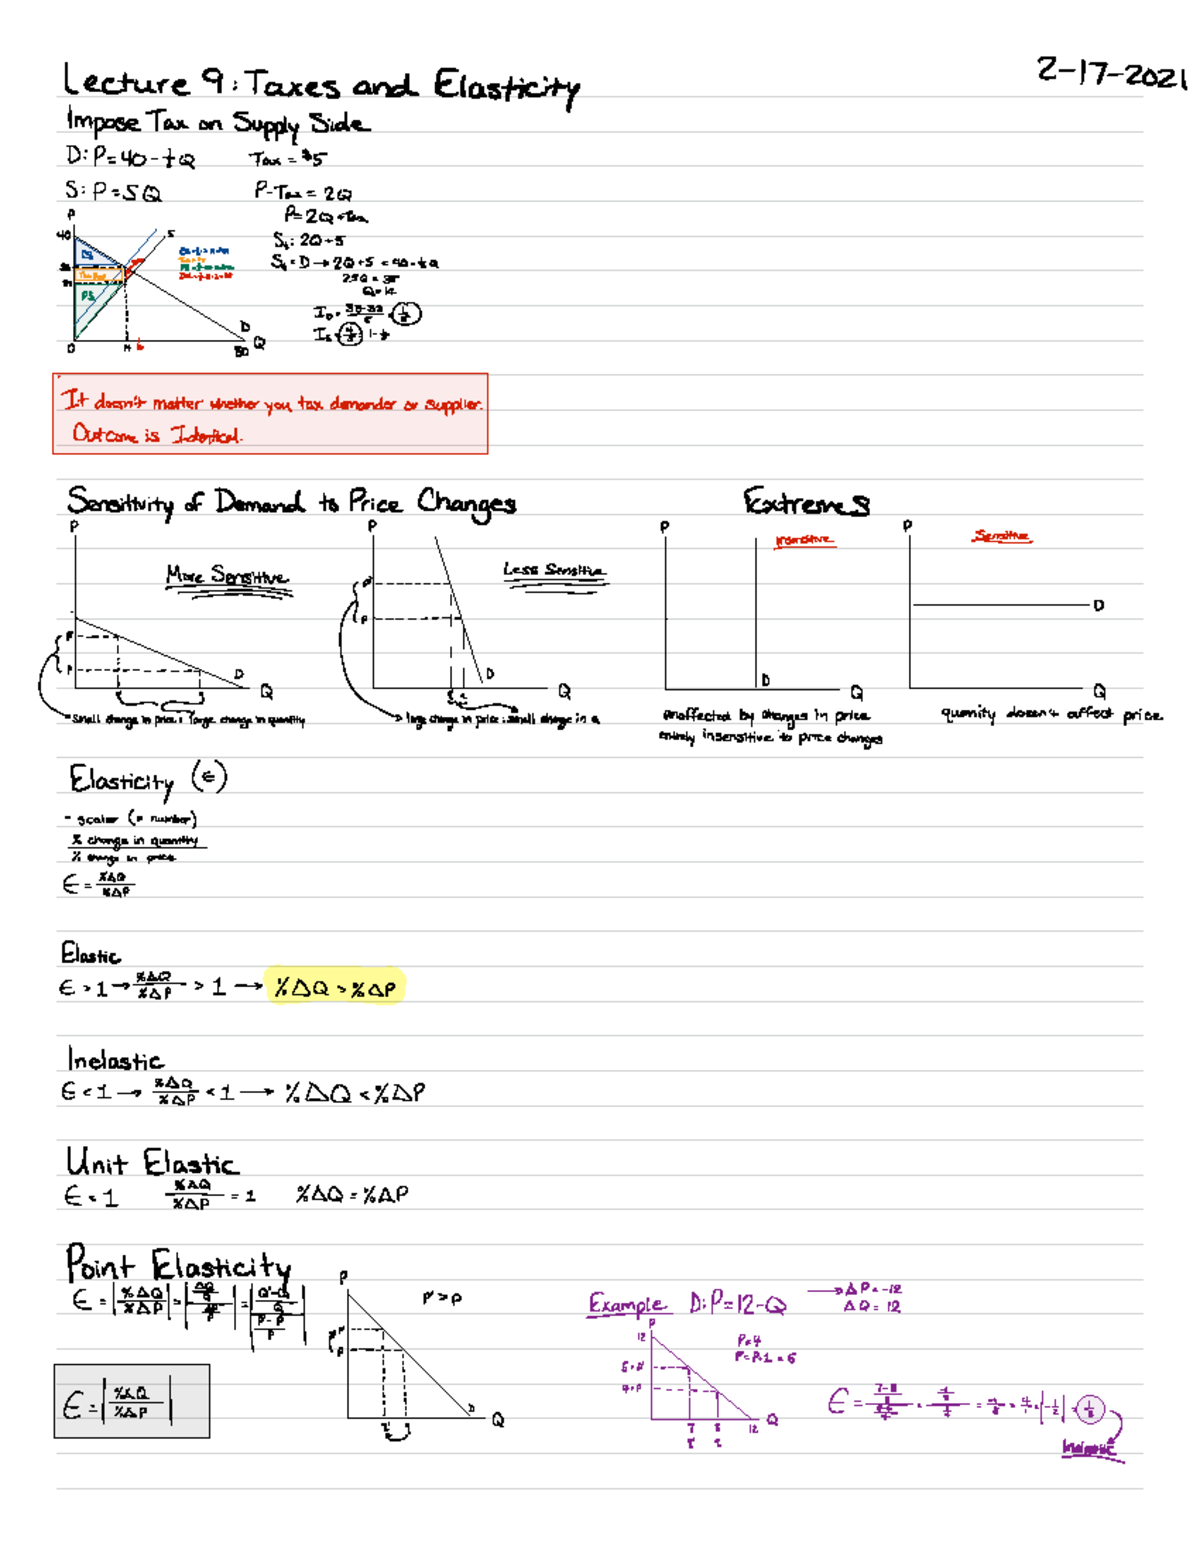 Lecture 9: Taxes and Elasticity
2-17-2021
Impose Tax on Supply Side
D: P = 40 - ½Q
Tax = $5
S: P = 5Q
P-Tax = 2Q
P = 2Q + Tax
S₁: 2Q + 5
S₁ = D → 2Q + 5 = 40 - ½Q
2.5Q = 35
Q = 14
P
40
CS
PS
S
D
Q
0
14
80
It doesn't matter whether you tax demander or supplier.
Outcome is Identical.
Sensitivity of Demand to Price Changes
Extremes
P
More Sensitive
P'
P
D
Q
- Small change in price: large change in quantity
P
Less Sensitive
P'
P
D
Q
large change in price: small change in Q
P
Insensitive
D
Q
unaffected by changes in price
entirely insensitive to price changes
P
Sensitive
D
Q
quanity doesn't affect price
Elasticity (ϵ)
- scalar (a number)
% change in quantity
% change in price
ϵ = %ΔQ / %ΔP
Elastic
ϵ > 1 → %ΔQ / %ΔP > 1 → %ΔQ > %ΔP
Inelastic
ϵ < 1 → %ΔQ / %ΔP < 1 → %ΔQ < %ΔP
Unit Elastic
ϵ = 1 %ΔQ / %ΔP = 1 %ΔQ = %ΔP
Point Elasticity
ϵ = |%ΔQ / %ΔP|
ϵ = |%ΔQ / %ΔP|
P
P' > P
P'
P
D
Q
Example D: P = 12 - Q → ΔP = -12
ΔQ = 12
P
12
P = 4
5 = P'
4 = P
7
8
12
Q
Inelastic